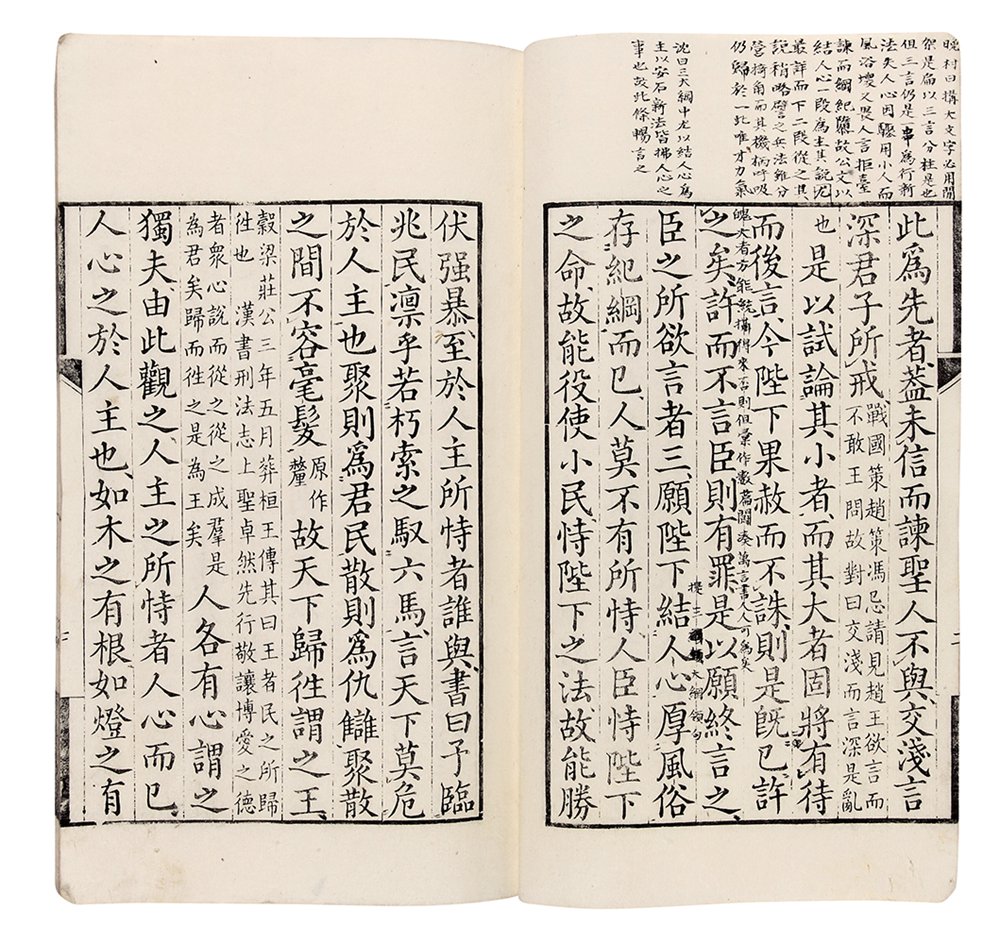 晚村曰搆大文字必用間
架是扁以三言分柱是也
但三言仍是一事為行新
法失人心因驟用小人而
風俗壞又畏人言拒臺
諫而綱紀隳故公文以
結人心一段為主其說尤
最詳而下二段從之其
說稍略譬之兵法雖分
營掎角而其機柄呼吸
仍歸於一此唯才力氣
魄大者方能統攝得來否則但彙作數篇湊萬言書人人可為矣
沈曰三大綱中尤以結人心為
主以安石新法皆拂人心之
事也故此條暢言之
此爲先者蓋未信而諫聖人不與交淺言
深君子所戒戰國策趙策馮忌請見趙王欲言而
不敢王問故對曰交淺而言深是亂
也是以試論其小者而其大者固將有待
而後言今陛下果赦而不誅則是旣已許
之矣許而不言臣則有罪是以願終言之
提三大綱領句
臣之所欲言者三願陛下結人心厚風俗
存紀綱而已人莫不有所恃人臣恃陛下
之命故能役使小民恃陛下之法故能勝
伏强暴至於人主所恃者誰與書曰予臨
兆民凛乎若朽索之馭六馬言天下莫危
於人主也聚則爲君民散則爲仇讎聚散
之間不容毫髮原作
釐故天下歸徃謂之王
穀梁莊公三年五月葬桓王傳其曰王者民之所歸
徃也 漢書刑法志上聖卓然先行敬讓博愛之德
者衆心說而從之從之成羣是
為君矣歸而徃之是為王矣人各有心謂之
獨夫由此觀之人主之所恃者人心而已
人心之於人主也如木之有根如燈之有